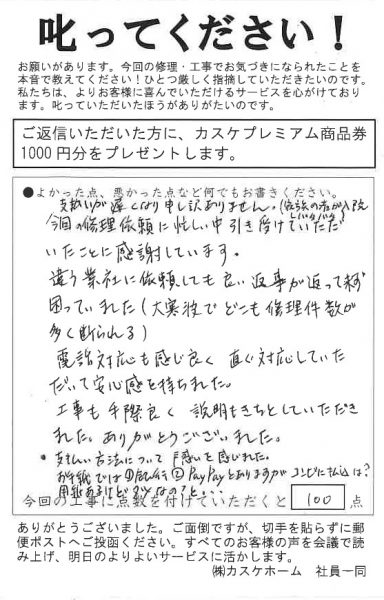 叱ってください！
お願いがあります。今回の修理・工事でお気づきになられたことを
本音で教えてください！ひとつ厳しく指摘していただきたいのです。
私たちは、よりお客様に喜んでいただけるサービスを心がけておりま
す。叱っていただいたほうがありがたいのです。
ご返信いただいた方に、カスケプレミアム商品券
1000円分をプレゼントします。
●よかった点、悪かった点など何でもお書きください。
支払いが遅くなり申し訳ありません。(家族の者が入院
今回の修理依頼に忙しい中引き受けていただ
いたことに感謝しています。
違う業社に依頼しても良い返事が返って来ず
困っていました(大寒波でどこも修理件数が
多く断られる)
電話対応も感じ良く 直ぐ対応していた
だいて安心感を持ちれた。
工事も手際良く 説明もきちとしていただき
ました。ありがとうございました。
・支払い方法について を感じました。
お手紙では①銀行②PayPayとありますが コンビニ払込は？
用紙あるけど なの？と・・・
今回の工事に点数を付けていただくと 100 点
ありがとうございました。ご面倒ですが、切手を貼らずに郵
便ポストへご投函ください。すべてのお客様の声を会議で読
み上げ、明日のよりよいサービスに活かします。
㈱カスケホーム 社員一同